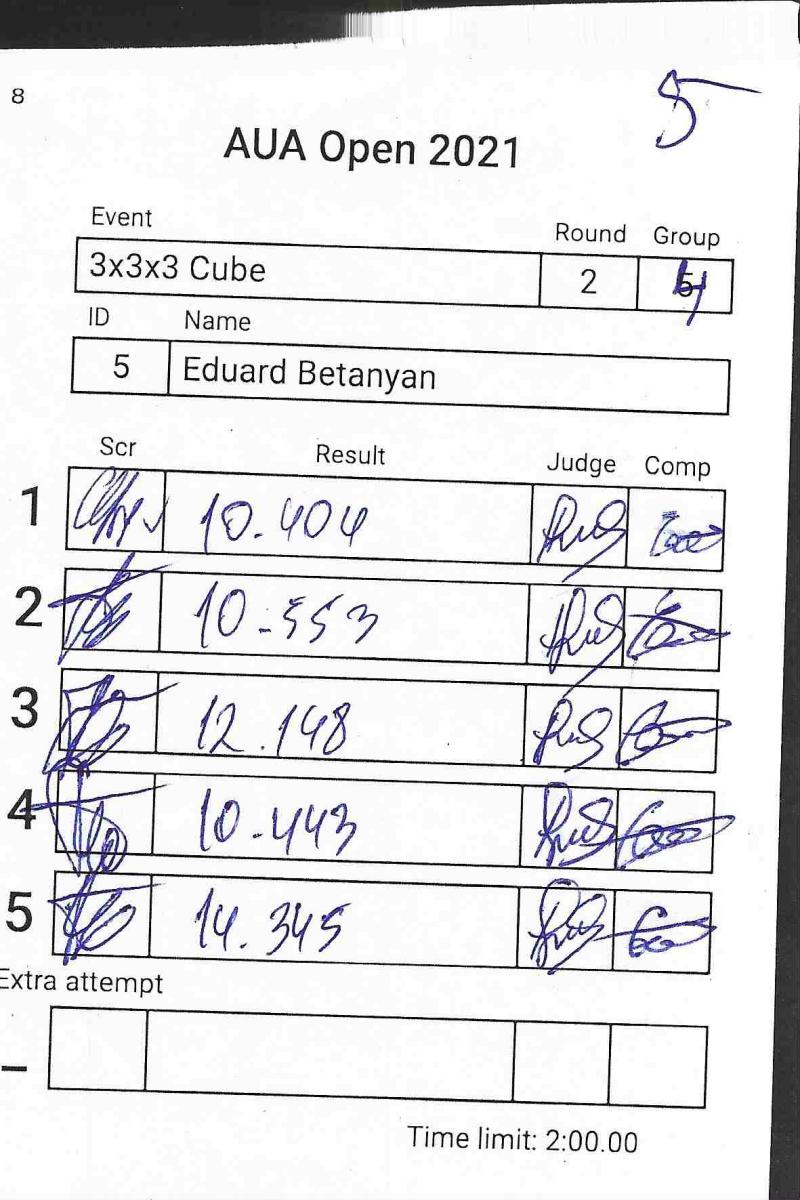 8
5
AUA Open 2021
Event Round Group
3x3x3 Cube 2 4
ID Name
5 Eduard Betanyan
Scr Result Judge Comp
1 10.404
2 10.553
3 12.148
4 10.443
5 14.345
Extra attempt
–
Time limit: 2:00.00